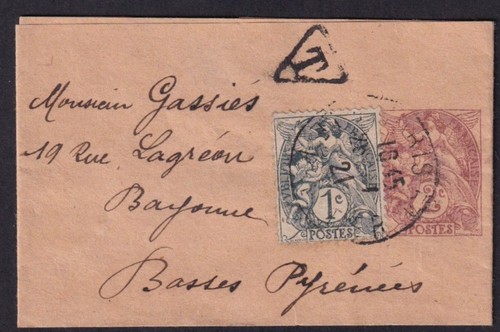 T
Monsieur Gassiés
19 Rue Lagréon
Bayonne
Basses Pyrénées
1c
POSTES
2c
POSTES
16 45
21